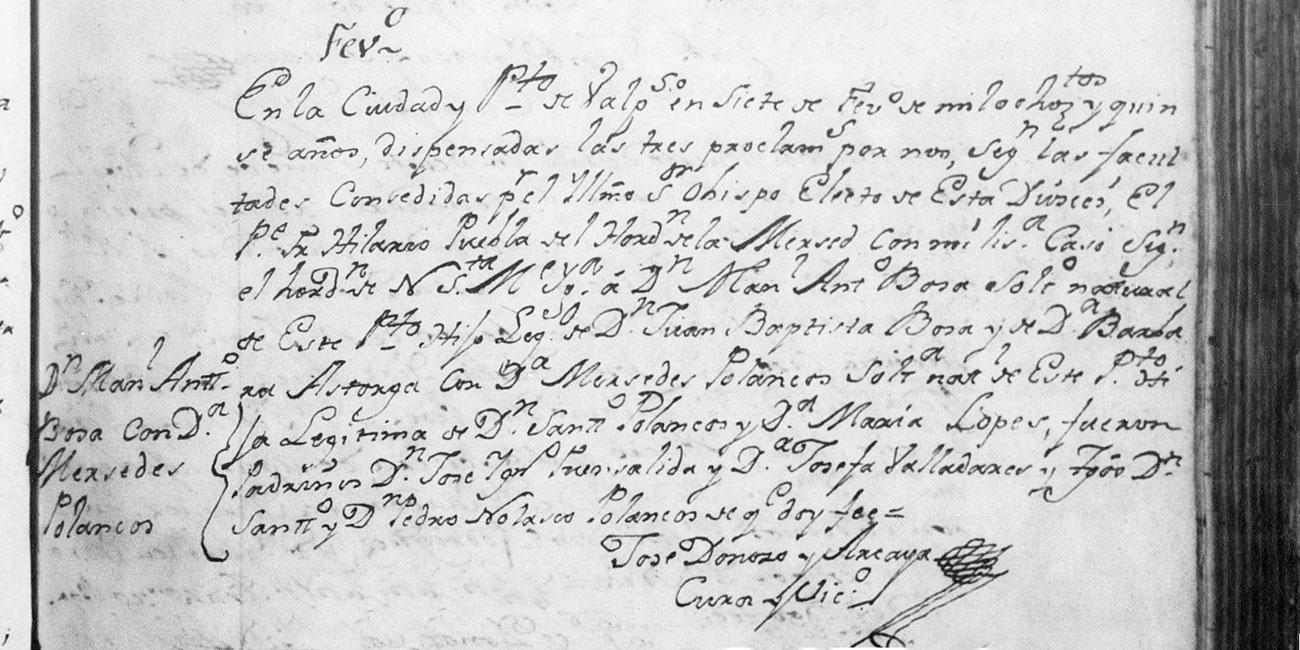 Fevº
En la Ciudad y Pto de Valpso en siete de Fevº de mil ochoztos y quin
se años, dispensadas las tres proclams por nos, segn las facul
tades Consedidas pr el Yllmo Sor Obispo Electo de Esta Dioses, El
Pe. Fr Hilario Puebla del Hordn de la Mersed Con mi lisa. Caso Sign.
el hordn de N Sta. M Yga. á Dn Manl Antº Bosa Soltº natural
de Este Pto Hijo Lego. de Dn Juan Baptista Bosa y de Da. Barba
ra Astorga Con Da Mersedes Polancos Solta natl de Este Pto. Hi
ja Legitima de Dn Santo Polancos y Da. María Lopes, fueron
Padrinos Dn. Jose Ygno Fuensalida y Da. Josefa Valladares y Tgos Dn
Santo y Dn Pedro Nolasco Polancos de qe doy fee=
Jose Donoso y Arcaya
Cura y Vico.
Dn Manl Anto.
Bosa Con Da.
Mersedes
Polancos